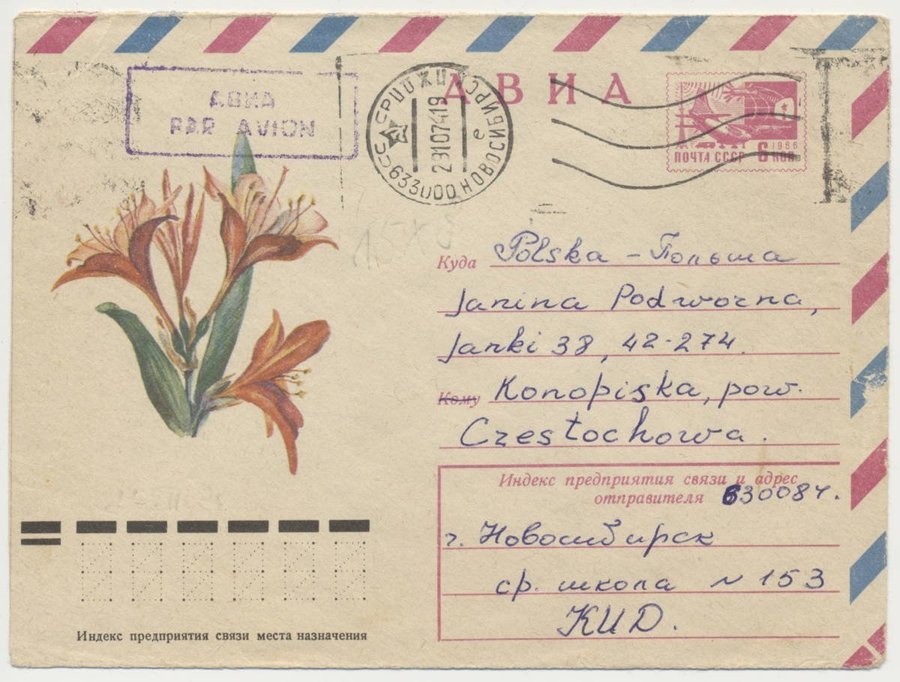 АВИА
PAR AVION
АВИА
СССР ЦДЖП
23107419
633000 НОВОСИБИРСК
е
1966
ПОЧТА СССР 6 КОП
Куда Polska – Польша
Janina Podworna,
Janki 38, 42-274.
Кому Konopiska, pow.
Czestochowa.
Индекс предприятия связи и адрес
отправителя 630084.
г. Новосибирск
ср. школа № 153
КИД.
Индекс предприятия связи места назначения